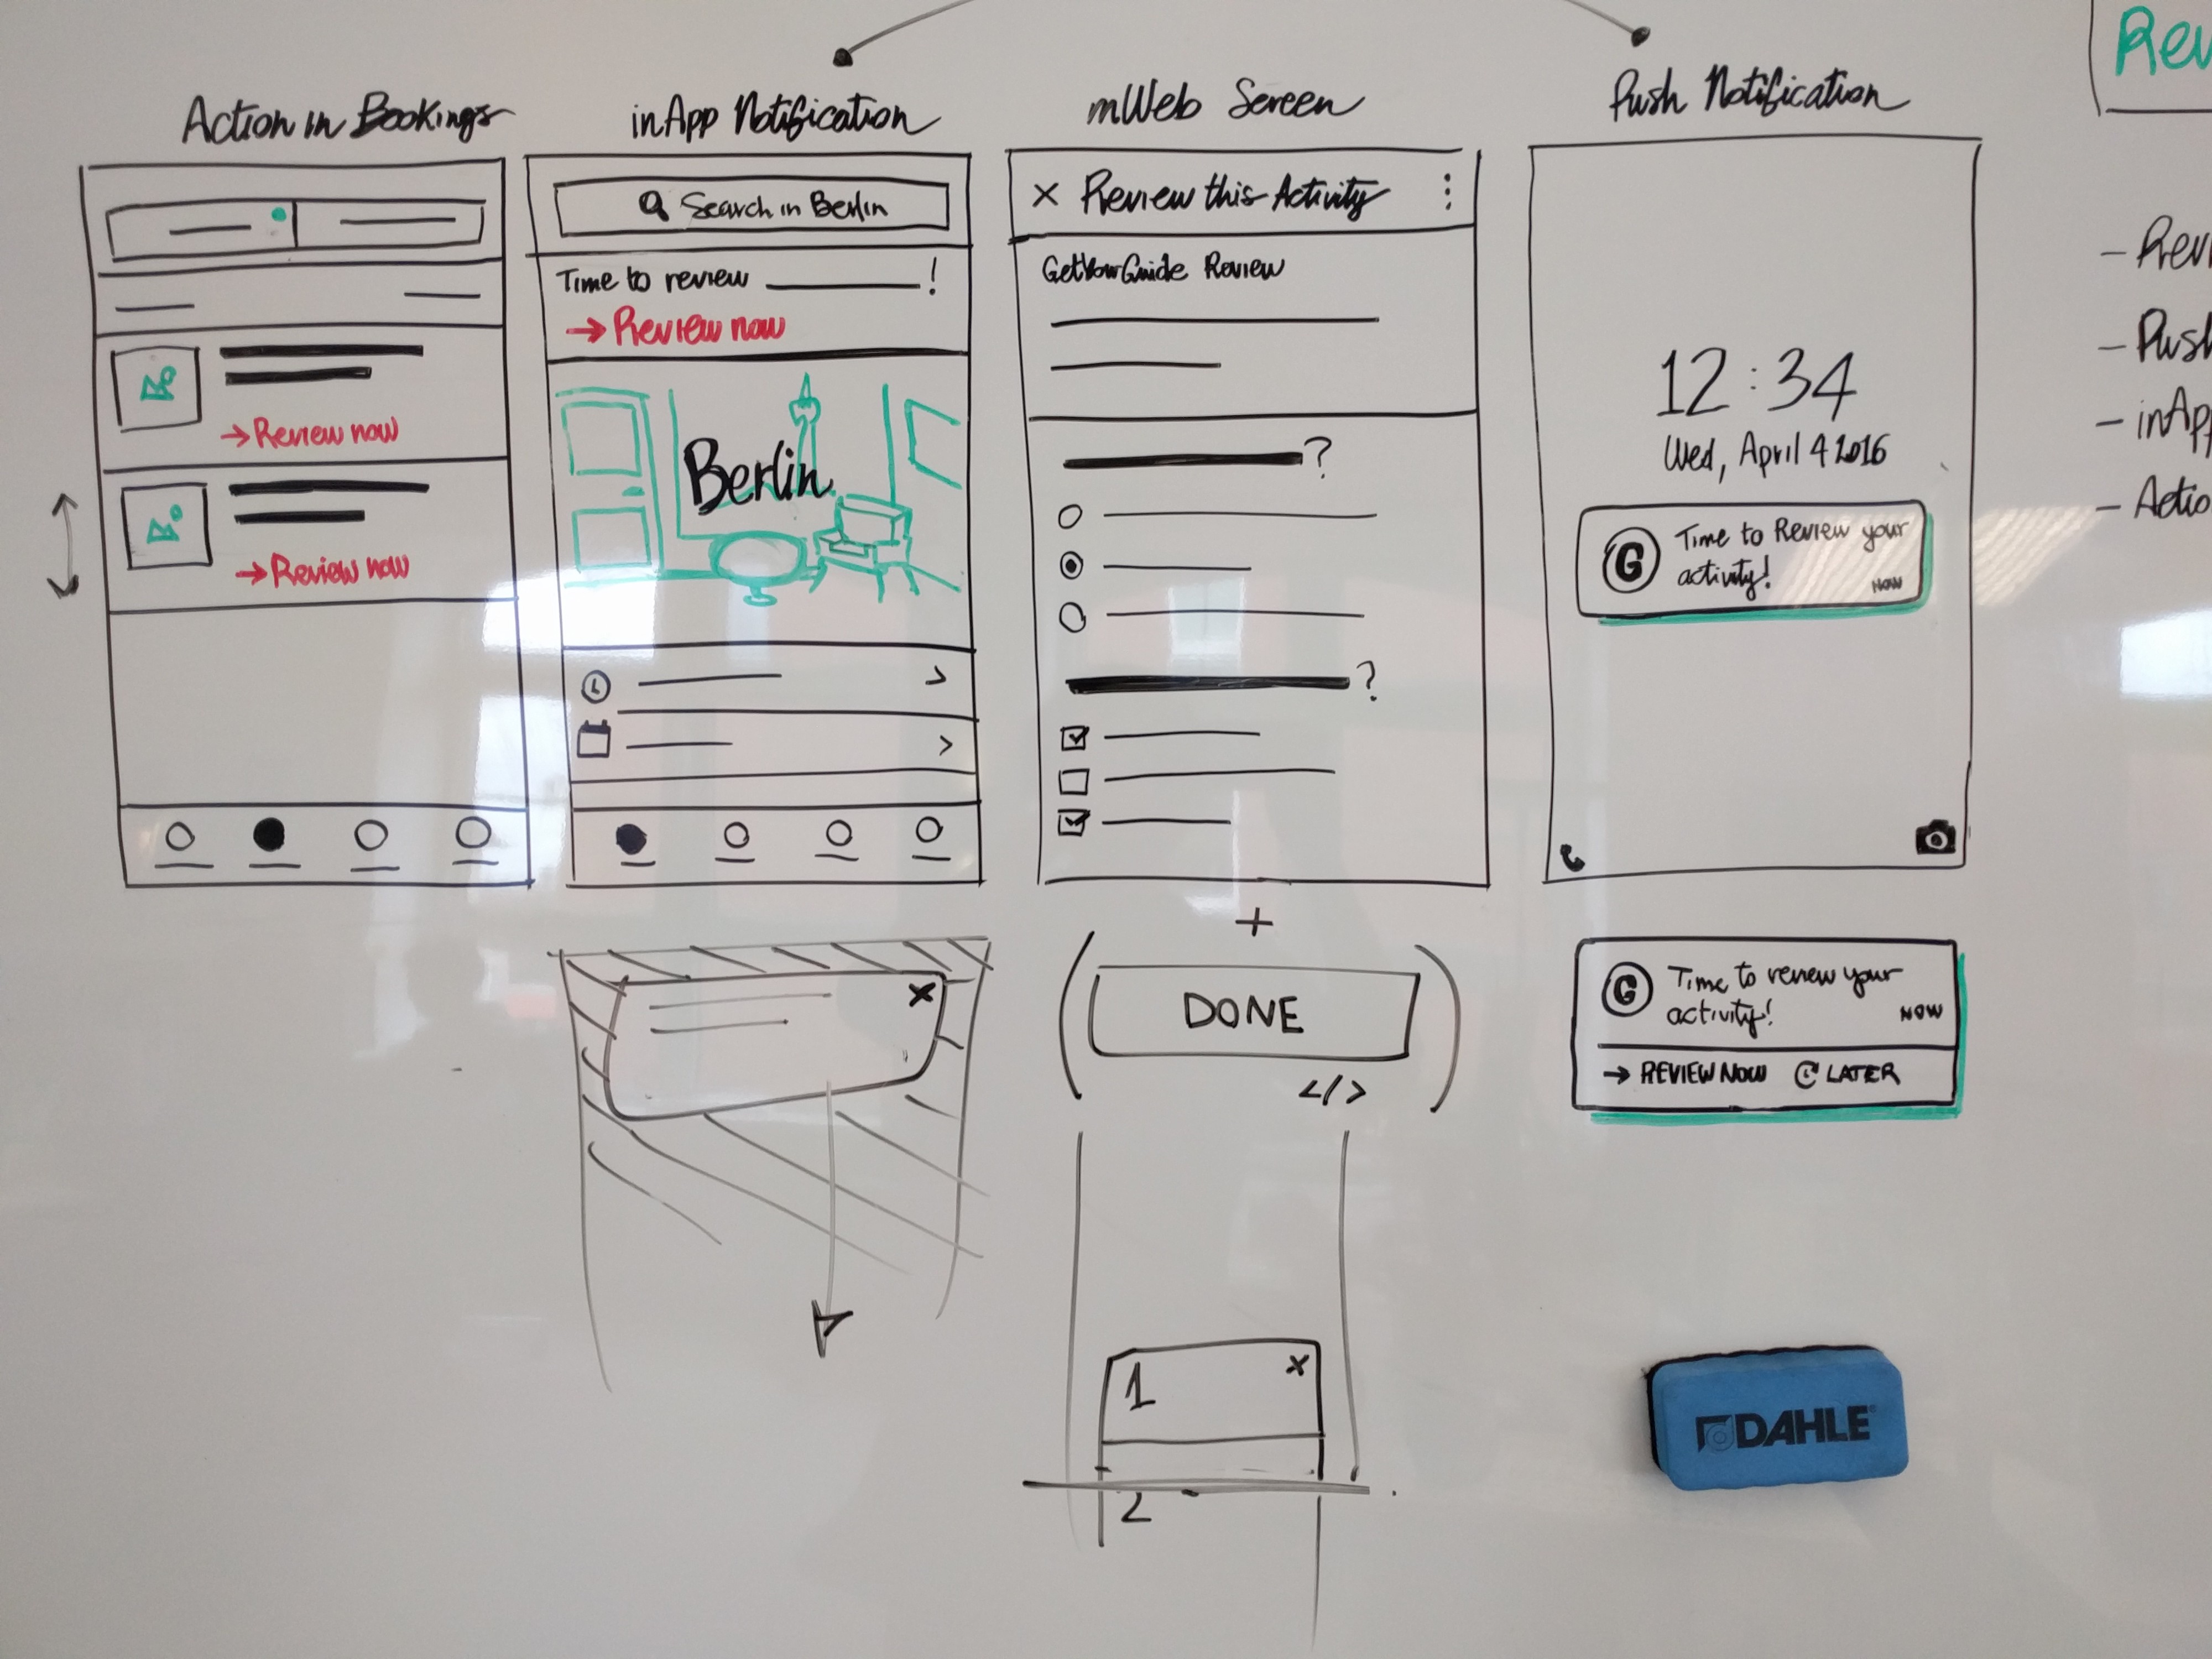 Action in Bookings
→ Review now
→ Review now
inApp Notification
Search in Berlin
Time to review ______ !
→ Review now
Berlin
mWeb Screen
× Review this Activity
GetYourGuide Review
?
?
+
( DONE )
</>
1 x
2
Push Notification
12:34
Wed, April 4 2016
G Time to Review your
activity!
NOW
G Time to review your
activity!
NOW
→ REVIEW NOW LATER
DAHLE
Rev
- Revi
- Push
- inApp
- Actio